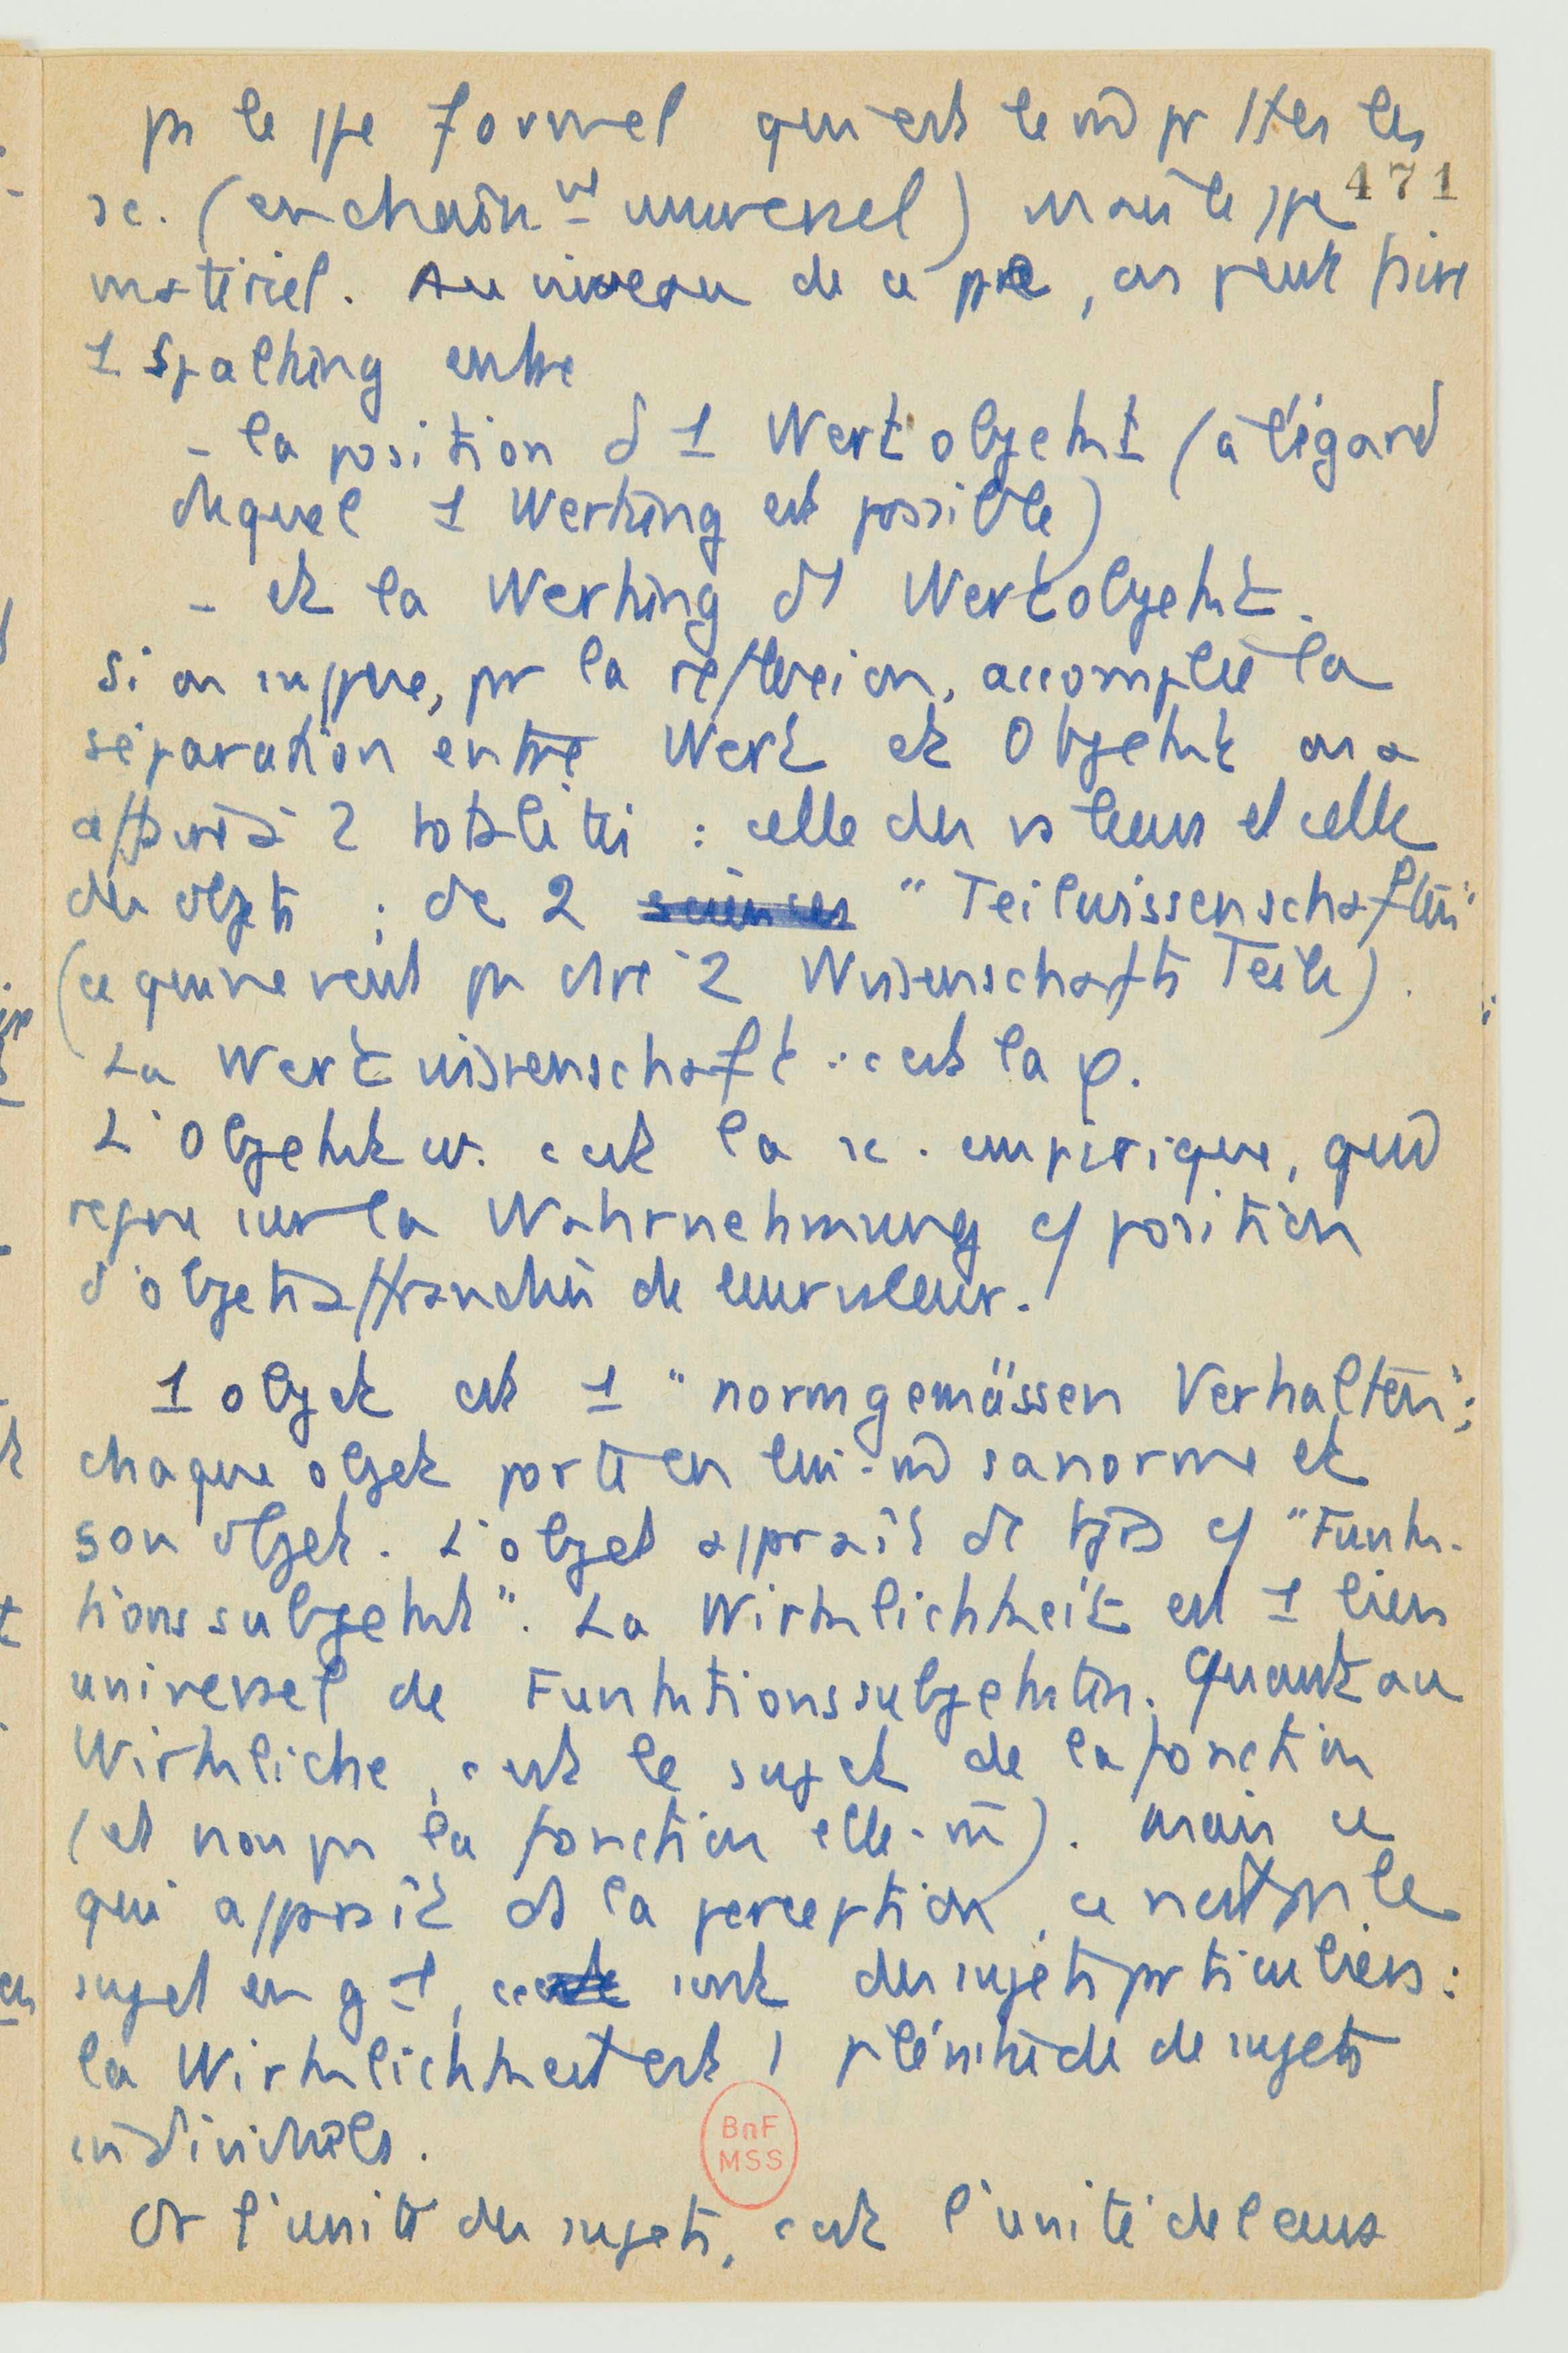 pas le ppe formel qui est le m̄ pr ttes les
471
sc. (enchaîn^nt universel) mais le ppe
matériel. Au niveau de ce ppe, on peut faire
1 Spaltung entre
- la position d 1 Wertobjekt (à l'égard
duquel 1 Wertung est possible)
- et la Wertung d 1 Wertobjekt.
Si on suppose, pr la réflexion, accomplie la
séparation entre Wert et Objekt on a
affaire à 2 totalités : celle des valeurs et celle
des objets ; de 2 sciences "Teilwissenschaften"
(ce qui ne veut pas dire 2 Wissenschafts Teile).
La Wertwissenschaft : c'est la φ.
L'Objektw. c'est la sc. empirique, qud
repose sur la Wahrnehmung c/ position
d'objets affranchis de leur valeur.
1 objet est 1 "normgemässen Verhalten";
chaque objet porte en lui-m̄ sa norme et
son objet. L'objet apparaît dc tjrs c/ "Funk-
tionssubjekt". La Wirklichkeit est 1 lien
universel de Funktionssubjekten. Quant au
Wirkliche, c'est le sujet de la fonction
(et non pas la fonction elle-m̄). Mais ce
qui apparaît ds la perception, ce n'est pas le
sujet en gal, ce sont des sujets particuliers :
la Wirklichkeit est 1 plénitude de sujets
individuels.
BnF
MSS
Or l'unité des sujets, c'est l'unité de leurs